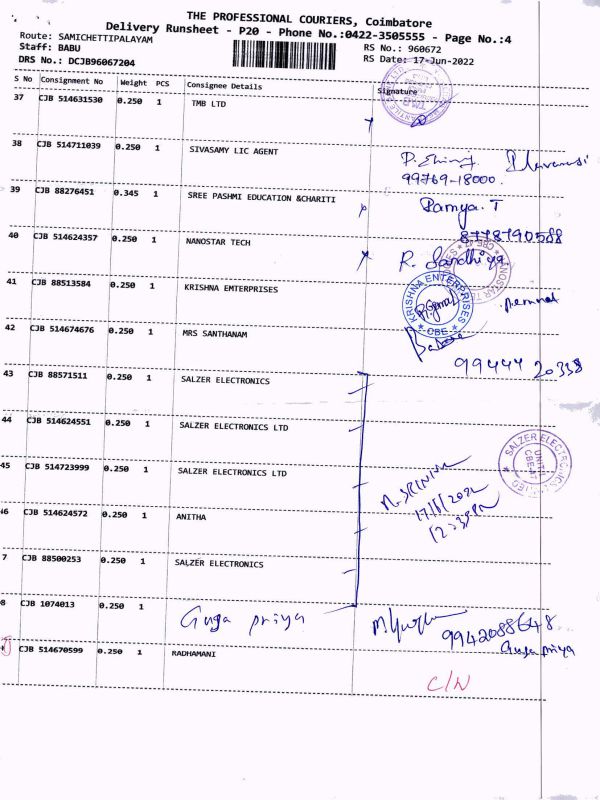 THE PROFESSIONAL COURIERS, Coimbatore
Delivery Runsheet - P20 - Phone No.:0422-3505555 - Page No.:4
Route: SAMICHETTIPALAYAM RS No.: 960672
Staff: BABU RS Date: 17-Jun-2022
DRS No.: DCJB96067204
S No Consignment No Weight PCS Consignee Details Signature
37 CJB 514631530 0.250 1 TMB LTD
38 CJB 514711039 0.250 1 SIVASAMY LIC AGENT
99769-18000.
39 CJB 88276451 0.345 1 SREE PASHMI EDUCATION &CHARITI Ramya.T
8778790588
40 CJB 514624357 0.250 1 NANOSTAR TECH R. Sandhiya
41 CJB 88513584 0.250 1 KRISHNA EMTERPRISES
KRISHNA ENTERPRISES
* CBE *
42 CJB 514674676 0.250 1 MRS SANTHANAM
99444 20338
43 CJB 88571511 0.250 1 SALZER ELECTRONICS
44 CJB 514624551 0.250 1 SALZER ELECTRONICS LTD
SALZER ELECTRONICS LIMITED
45 CJB 514723999 0.250 1 SALZER ELECTRONICS LTD
46 CJB 514624572 0.250 1 ANITHA
7 CJB 88500253 0.250 1 SALZER ELECTRONICS
8 CJB 1074013 0.250 1 Guga priya 9942088648
Guga priya
CJB 514670599 0.250 1 RADHAMANI
C/N